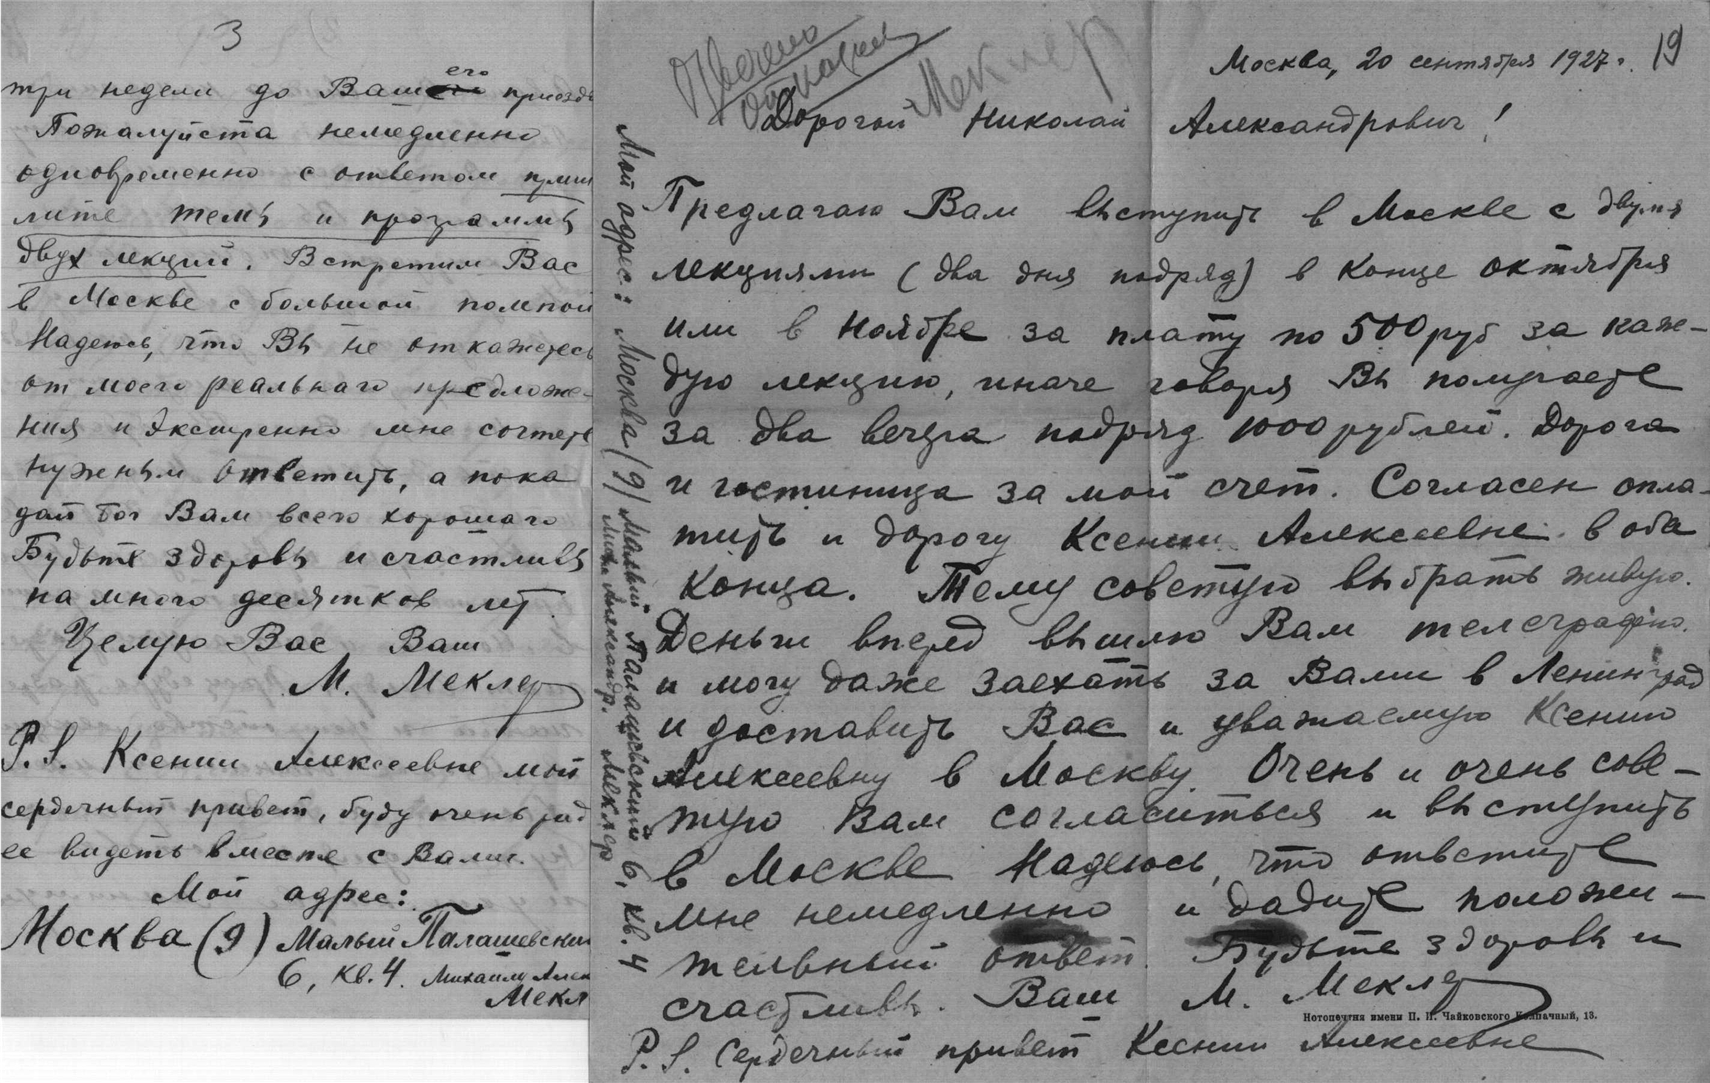 3
три недели до Вашего приезд
Пожалуйста немедленно
одновременно с ответом приш
лите темы и программы
двух лекций. Встретим Вас
в Москве с большой помпой
Надеюсь, что Вы не откажетесь
от моего реальнаго предложе-
ния и экстренно мне сочтете
нужным ответить, а пока
дай Бог Вам всего хорошаго
Будьте здоровы и счастливы
на много десятков лет.
Целую Вас Ваш
М. Меклер
P.S. Ксении Алексеевне мой
сердечный привет, буду очень рад
ее видеть вместе с Вами.
Мой адрес:
Москва (9) Малый Палашевский
6, кв. 4. Михаилу Алек
Мекл
19
Москва, 20 сентября 1927 г.
Меклер
Дорогой Николай Александрович!
Предлагаю Вам выступить в Москве с двумя
лекциями (два дня подряд) в конце октября
или в ноябре за плату по 500 руб за каж-
дую лекцию, иначе говоря Вы получаете
за два вечера подряд 1000 рублей. Дорога
и гостиница за мой счет. Согласен опла-
тить и дорогу Ксении Алексеевне в оба
конца. Тему советую выбрать живую.
Деньги вперед вышлю Вам телеграфно.
и могу даже заехать за Вами в Ленинград
и доставить Вас и уважаемую Ксению
Алексеевну в Москву. Очень и очень сове-
тую Вам согласиться и выступить
в Москве Надеюсь, что ответите
мне немедленно и дадите положи-
тельный ответ. Будьте здоровы и
счастливы. Ваш М. Меклер
P.S. Сердечный привет Ксении Алексеевне
Нотопечатня имени П. И. Чайковского Колпачный, 13.
Мой адрес: Москва (9) Малый Палашевский 6, кв. 4
Мих. Александр. Меклер